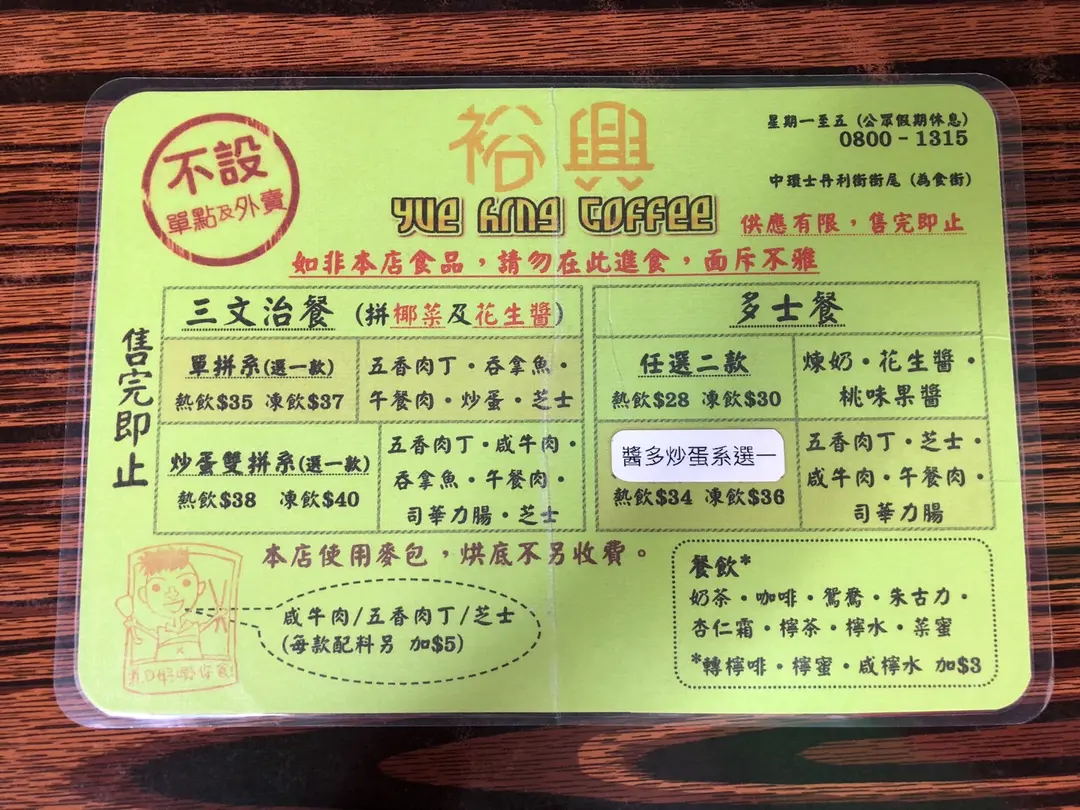 不設
單點及外賣
裕興
YUE HING COFFEE
星期一至五 (公眾假期休息)
0800 - 1315
中環士丹利街街尾 (為食街)
供應有限，售完即止
如非本店食品，請勿在此進食，面斥不雅
售完即止
三文治餐 (拼椰菜及花生醬)
單拼系(選一款)
熱飲$35 凍飲$37
五香肉丁・吞拿魚・
午餐肉・炒蛋・芝士
炒蛋雙拼系(選一款)
熱飲$38 凍飲$40
五香肉丁・咸牛肉・
吞拿魚・午餐肉・
司華力腸・芝士
多士餐
任選二款
熱飲$28 凍飲$30
煉奶・花生醬・
桃味果醬
醬多炒蛋系選一
熱飲$34 凍飲$36
五香肉丁・芝士・
咸牛肉・午餐肉・
司華力腸
本店使用麥包，烘底不另收費。
咸牛肉/五香肉丁/芝士
(每款配料另 加$5)
餐飲*
奶茶・咖啡・鴛鴦・朱古力・
杏仁霜・檸茶・檸水・菜蜜
*轉檸啡・檸蜜・咸檸水 加$3